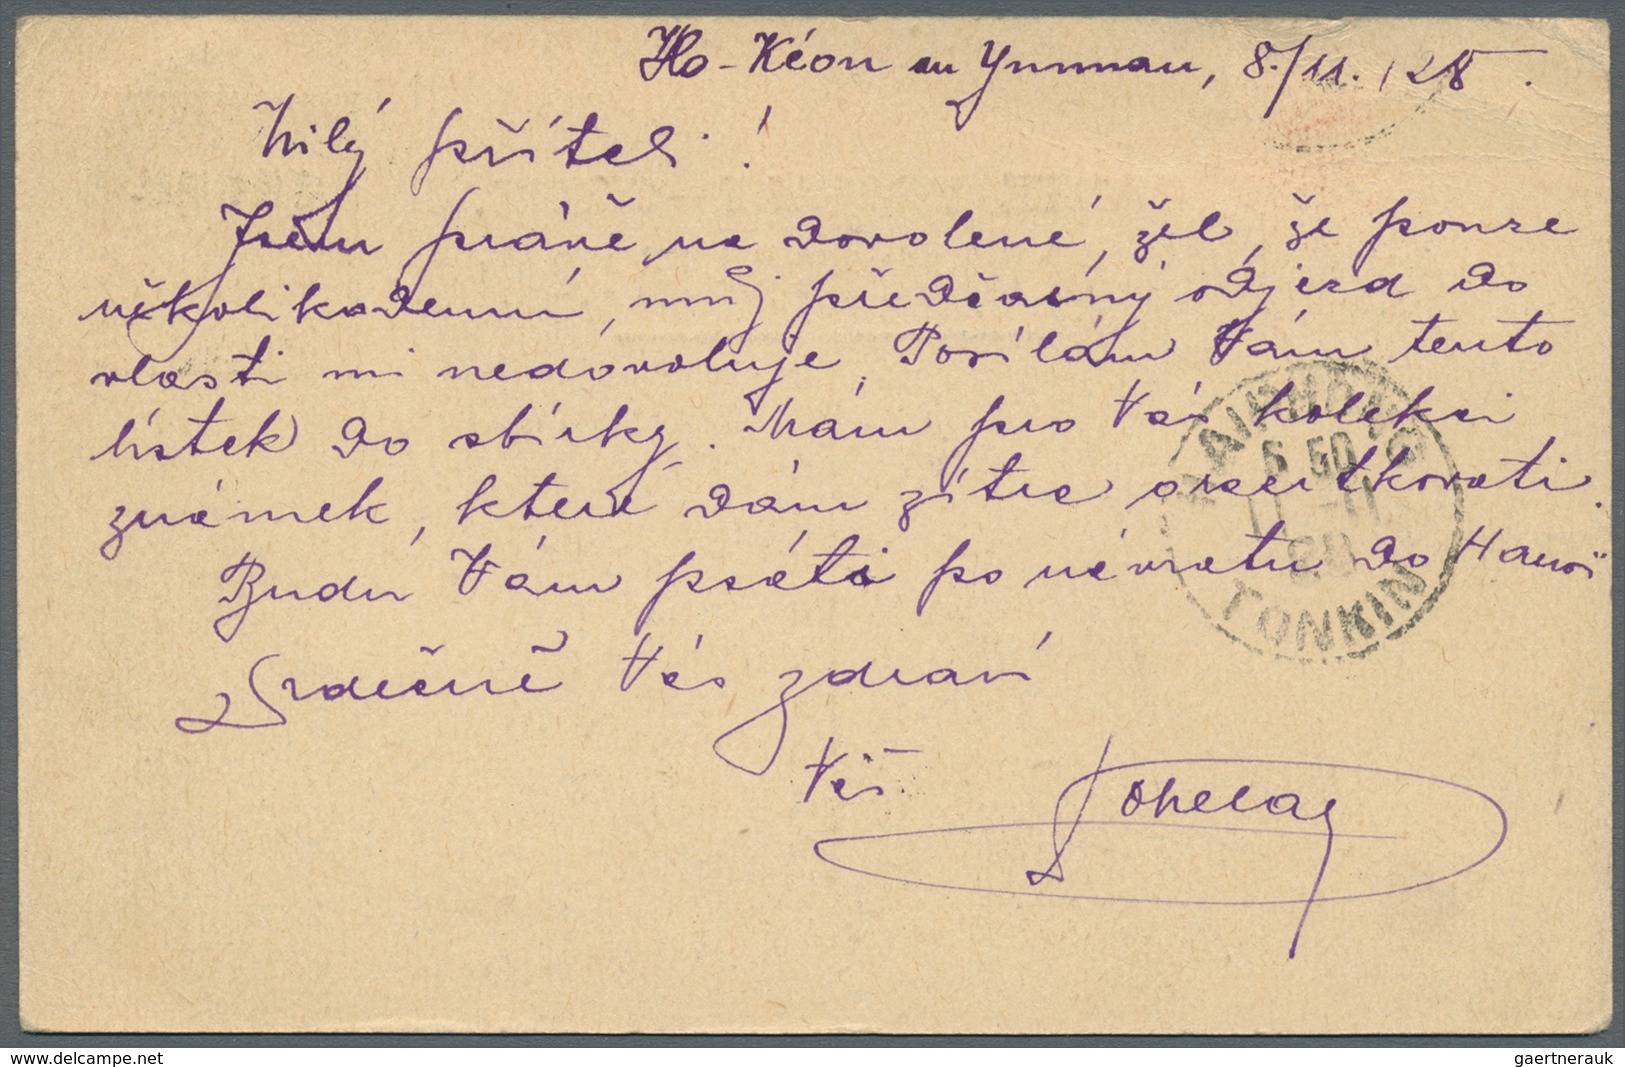 Ho-Kéou au Yunnan, 8./11. 128.
Milý příteli!
Jsem právě na dovolené, žel, že pouze
několikadenní, můj předčasný odjezd do
vlasti mi nedovoluje. Posílám Vám tento
lístek do sbírky. Mám pro Vás kolekci
známek, které dám zítra orazítkovati.
Budu Vám psáti po návratu do Hanoi
Srdečně Vás zdraví
Váš
HAIPHONG
6 50
11 -11
28
TONKIN
www.delcampe.net
gaertnerauk